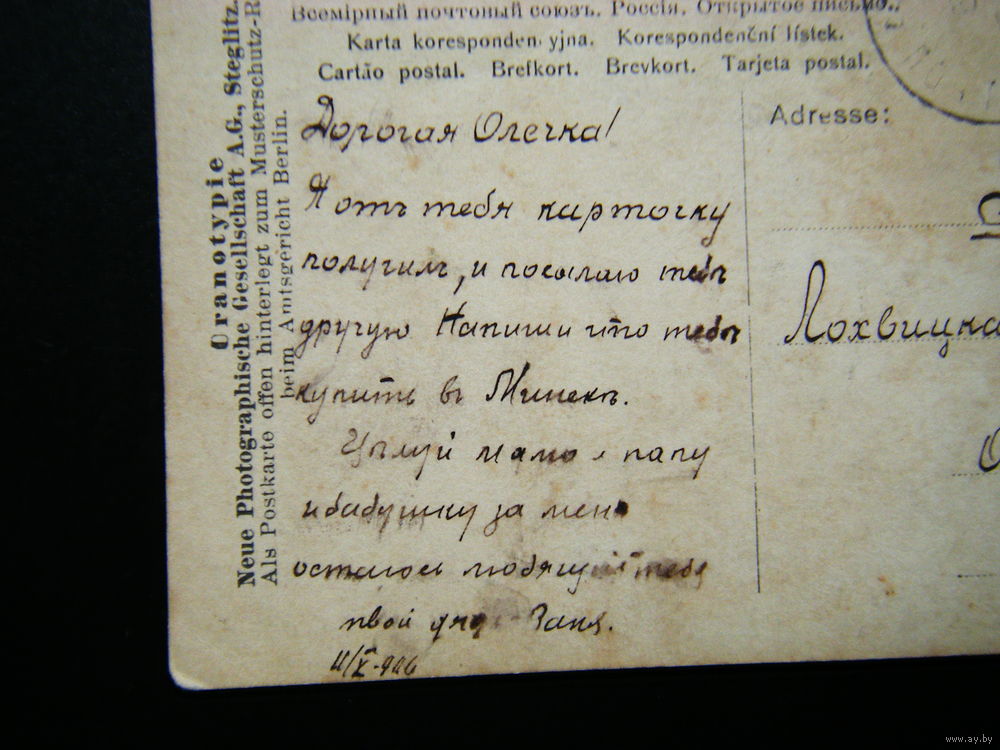 Всемірный почтовый союзъ. Россія. Открытое письмо.
Karta koresponden yjna. Korespondenční lístek.
Cartão postal. Brefkort. Brevkort. Tarjeta postal.
Дорогая Олечка!
Я отъ тебя карточку
получилъ, и посылаю тебѣ
другую Напиши что тебѣ
купить въ Минскѣ.
Цѣлуй маму и папу
и бабушку за меня
остаюсь любящій тебя
твой дядя
Adresse:
Лохвицка
Oranotypie
Neue Photographische Gesellschaft A.G., Steglitz.
Als Postkarte offen hinterlegt zum Musterschutz-R
beim Amtsgericht Berlin.
www.ay.by